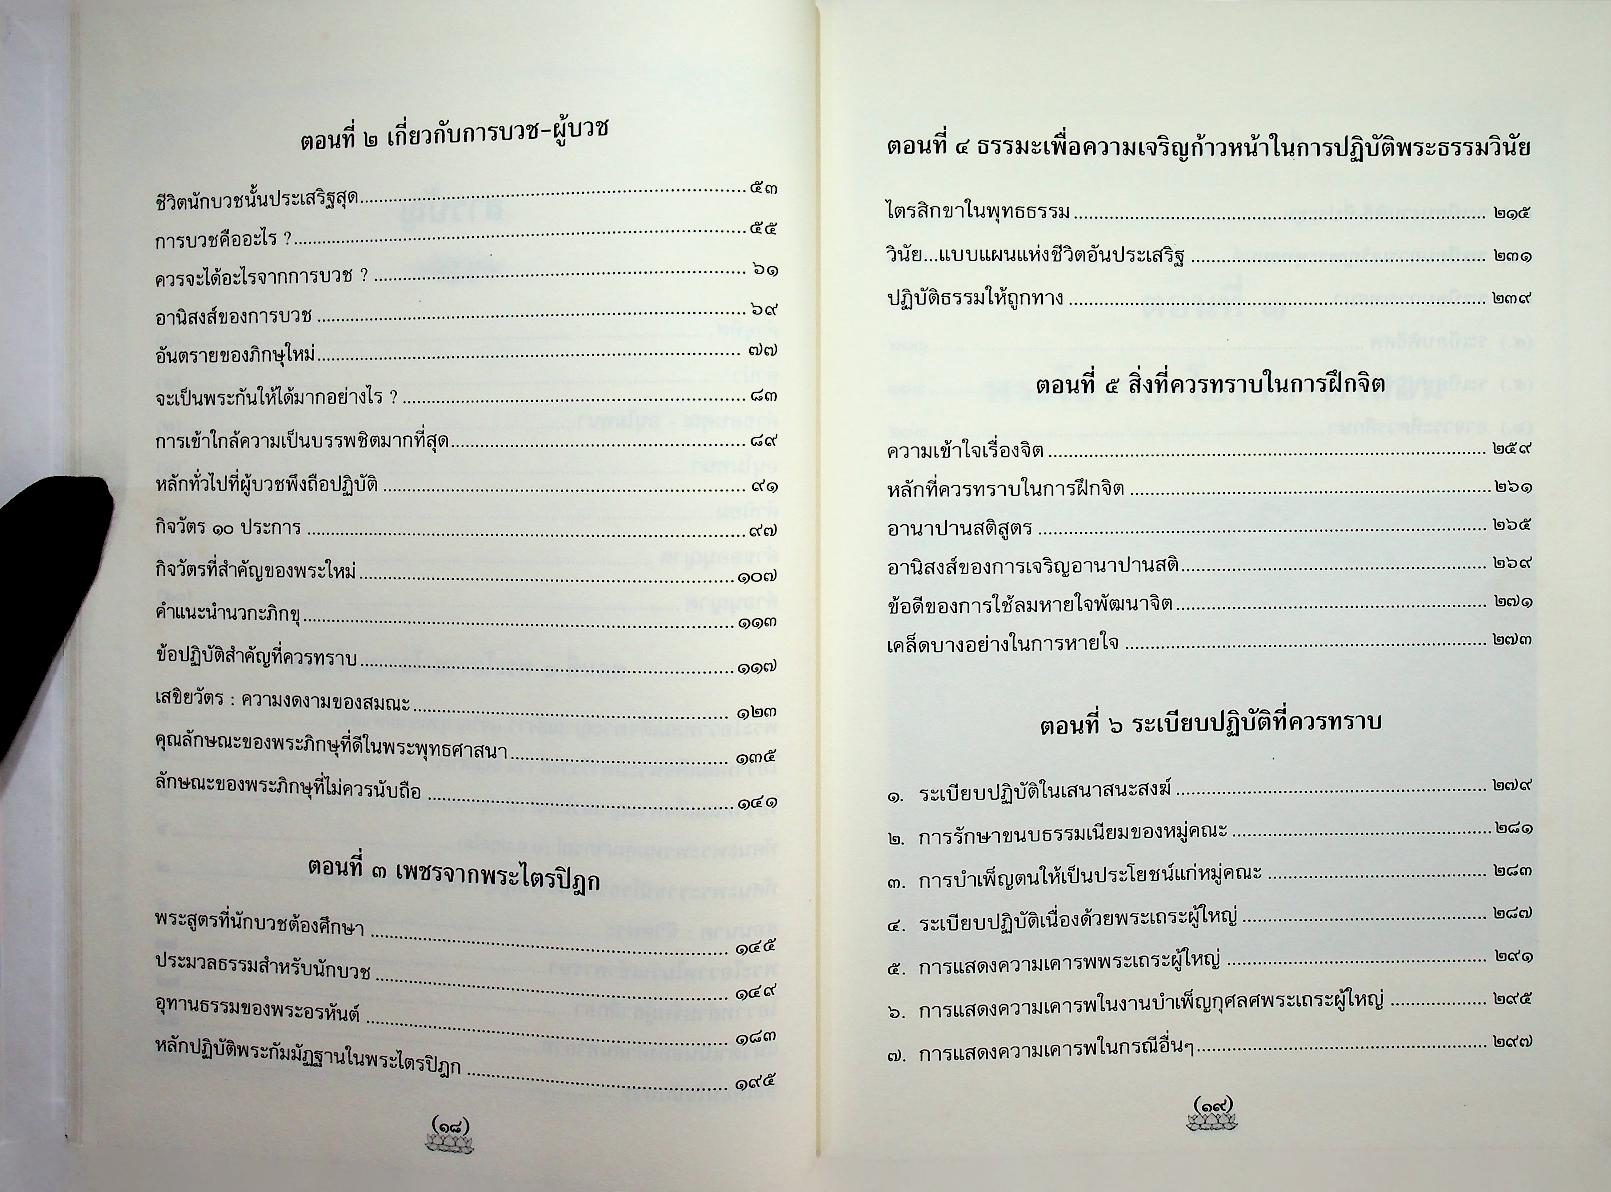 ตอนที่ ๒ เกี่ยวกับการบวช-ผู้บวช
ชีวิตนักบวชนั้นประเสริฐสุด ๕๓
การบวชคืออะไร ? ๕๕
ควรจะได้อะไรจากการบวช ? ๖๑
อานิสงส์ของการบวช ๖๙
อันตรายของภิกษุใหม่ ๗๗
จะเป็นพระกันให้ได้มากอย่างไร ? ๘๓
การเข้าใกล้ความเป็นบรรพชิตมากที่สุด ๘๙
หลักทั่วไปที่ผู้บวชพึงถือปฏิบัติ ๙๑
กิจวัตร ๑๐ ประการ ๙๗
กิจวัตรที่สำคัญของพระใหม่ ๑๐๗
คำแนะนำนวกะภิกขุ ๑๑๓
ข้อปฏิบัติสำคัญที่ควรทราบ ๑๑๗
เสขิยวัตร : ความงดงามของสมณะ ๑๒๓
คุณลักษณะของพระภิกษุที่ดีในพระพุทธศาสนา ๑๓๕
ลักษณะของพระภิกษุที่ไม่ควรนับถือ ๑๔๑
ตอนที่ ๓ เพชรจากพระไตรปิฎก
พระสูตรที่นักบวชต้องศึกษา ๑๔๕
ประมวลธรรมสำหรับนักบวช ๑๔๙
อุทานธรรมของพระอรหันต์ ๑๘๓
หลักปฏิบัติพระกัมมัฏฐานในพระไตรปิฎก ๑๙๕
(๑๘)
ตอนที่ ๔ ธรรมะเพื่อความเจริญก้าวหน้าในการปฏิบัติพระธรรมวินัย
ไตรสิกขาในพุทธธรรม ๒๑๕
วินัย...แบบแผนแห่งชีวิตอันประเสริฐ ๒๓๑
ปฏิบัติธรรมให้ถูกทาง ๒๓๙
ตอนที่ ๕ สิ่งที่ควรทราบในการฝึกจิต
ความเข้าใจเรื่องจิต ๒๕๙
หลักที่ควรทราบในการฝึกจิต ๒๖๑
อานาปานสติสูตร ๒๖๕
อานิสงส์ของการเจริญอานาปานสติ ๒๖๙
ข้อดีของการใช้ลมหายใจพัฒนาจิต ๒๗๑
เคล็ดบางอย่างในการหายใจ ๒๗๓
ตอนที่ ๖ ระเบียบปฏิบัติที่ควรทราบ
๑. ระเบียบปฏิบัติในเสนาสนะสงฆ์ ๒๗๙
๒. การรักษาขนบธรรมเนียมของหมู่คณะ ๒๘๑
๓. การบำเพ็ญตนให้เป็นประโยชน์แก่หมู่คณะ ๒๘๓
๔. ระเบียบปฏิบัติเนื่องด้วยพระเถระผู้ใหญ่ ๒๘๗
๕. การแสดงความเคารพพระเถระผู้ใหญ่ ๒๙๑
๖. การแสดงความเคารพในงานบำเพ็ญกุศลศพระเถระผู้ใหญ่ ๒๙๕
๗. การแสดงความเคารพในกรณีอื่นๆ ๒๙๗
(๑๙)